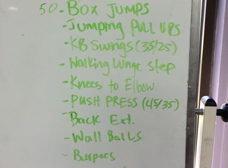 50 - BOX JUMPS
- Jumping PULL UPS
- KB Swings (35/25)
- Walking Lunge step
- Knees to Elbow
- PUSH PRESS (45/35)
- Back Ext.
- Wall Balls
- Burpees